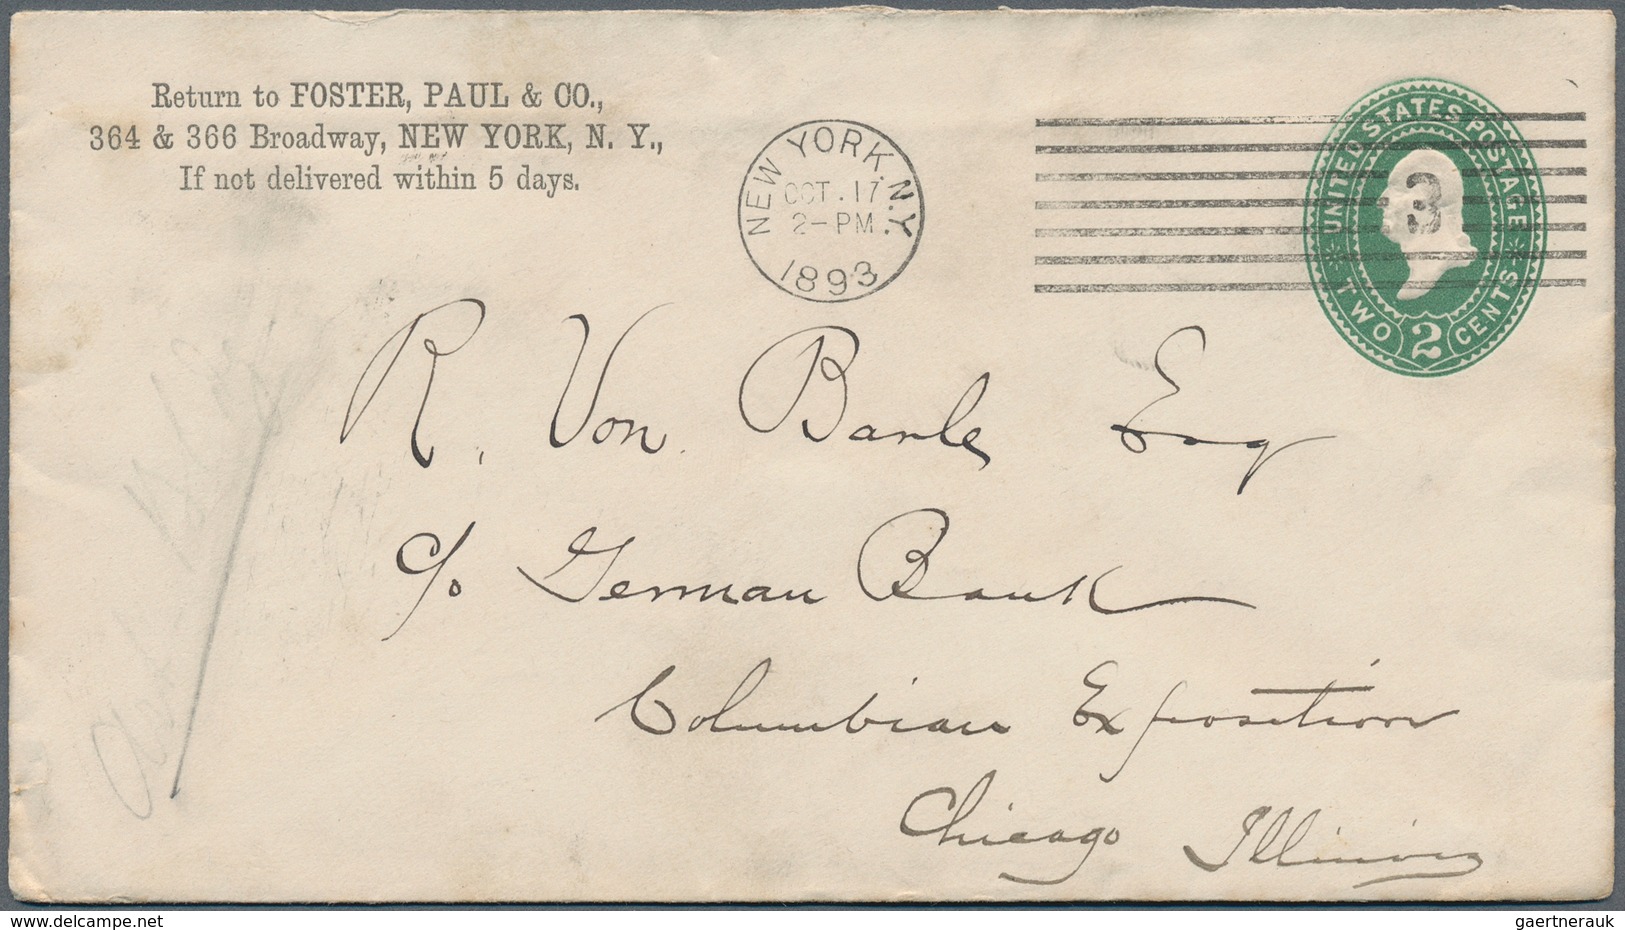 Return to FOSTER, PAUL & CO.,
364 & 366 Broadway, NEW YORK, N. Y.,
If not delivered within 5 days.
NEW YORK, N.Y.
OCT. 17
2-PM.
1893
3
UNITED STATES POSTAGE
TWO 2 CENTS
R. Von Barle Esq
c/o German Bank
Columbian Exposition
Chicago Illinois
www.delcampe.net
gaertnerauk